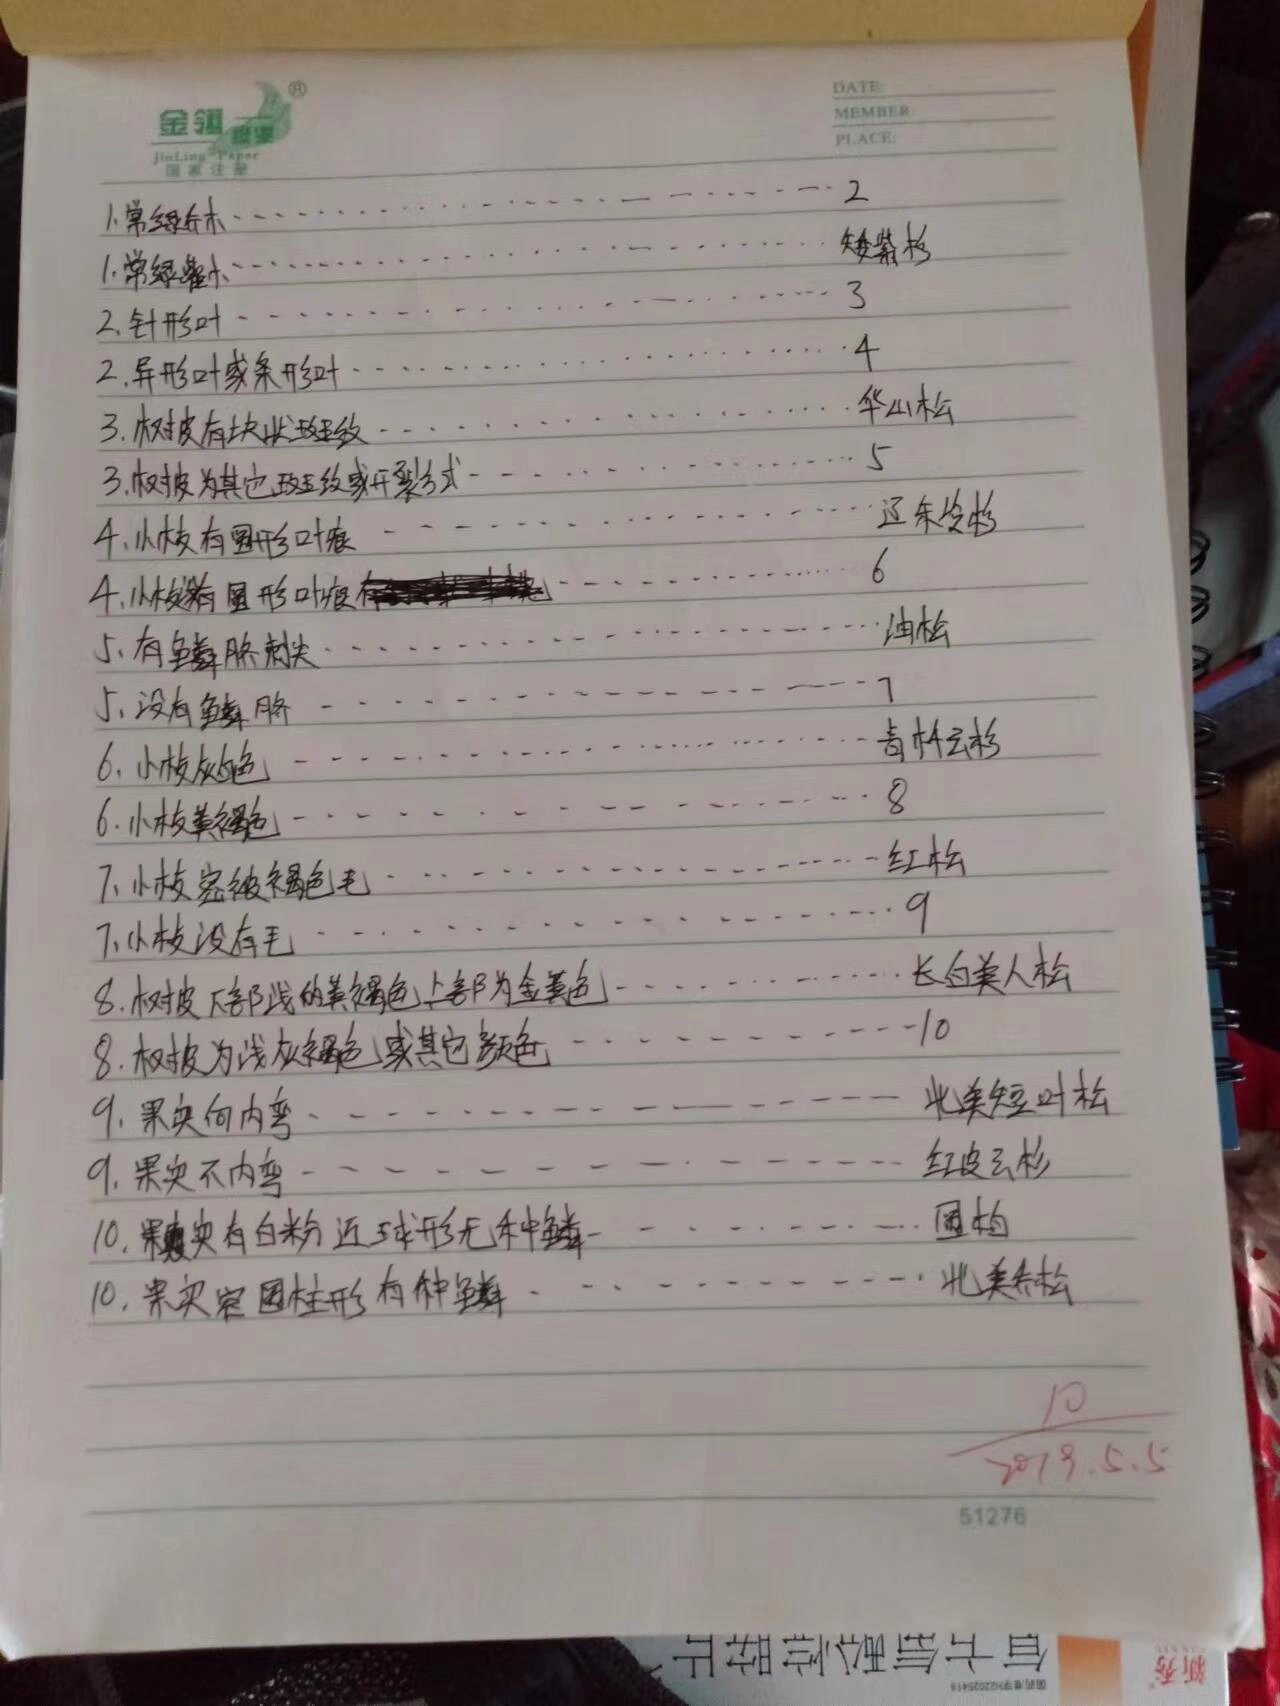 金翎
JinLing Paper
国家注册
DATE:
MEMBER:
PLACE:
1.常绿乔木 2
1.常绿灌木 矮紫杉
2.针形叶 3
2.异形叶或条形叶 4
3.树皮有块状斑纹 华山松
3.树皮为其它斑纹或开裂方式 5
4.小枝有圆形叶痕 辽东冷杉
4.小枝没有圆形叶痕 6
5.有鳞脐刺尖 油松
5.没有鳞脐 7
6.小枝灰白色 青杄云杉
6.小枝黄褐色 8
7.小枝密被褐色毛 红松
7.小枝没有毛 9
8.树皮下部浅的黄褐色上部为金黄色 长白美人松
8.树皮为浅灰褐色或其它颜色 10
9.果实向内弯 北美短叶松
9.果实不内弯 红皮云杉
10.果实有白粉近球形无种鳞 圆柏
10.果实窄圆柱形有种鳞 北美乔松
10
2019.5.5
51276
新秀
国药准字H22025419